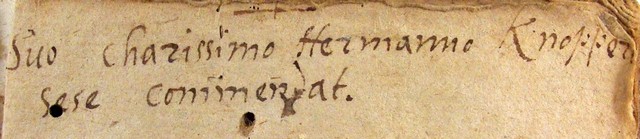 Suo charissimo Hermanno Knopper
sese commendat.